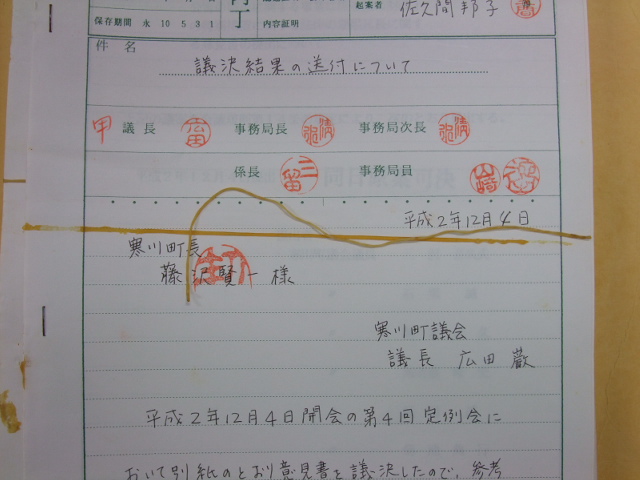 保存期間 永 10 5 3 1
丙
丁
内容証明
起案者 佐久間邦子
件名
議決結果の送付について
甲 議長 広田 事務局長 事務局次長
係長 三留 事務局員 山崎
平成2年12月4日
寒川町長
藤沢賢一様
寒川町議会
議長 広田 巌
平成2年12月4日開会の第4回定例会に
おいて別紙のとおり意見書を議決したので、参考